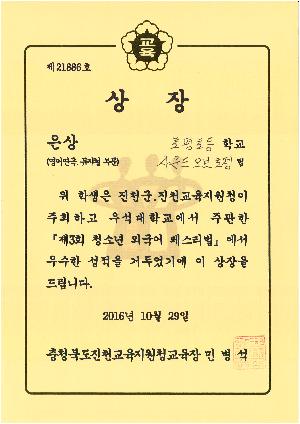 교육
제21886호
상장
은상 초평초등 학교
(영어연극.뮤지컬 부문) 사운드 오브 초평 팀
위 학생은 진천군.진천교육지원청이
주최하고 우석대학교에서 주관한
『제3회 청소년 외국어 페스티벌』에서
우수한 성적을 거두었기에 이 상장을
드립니다.
2016년 10월 29일
충청북도진천교육지원청교육장 민병석